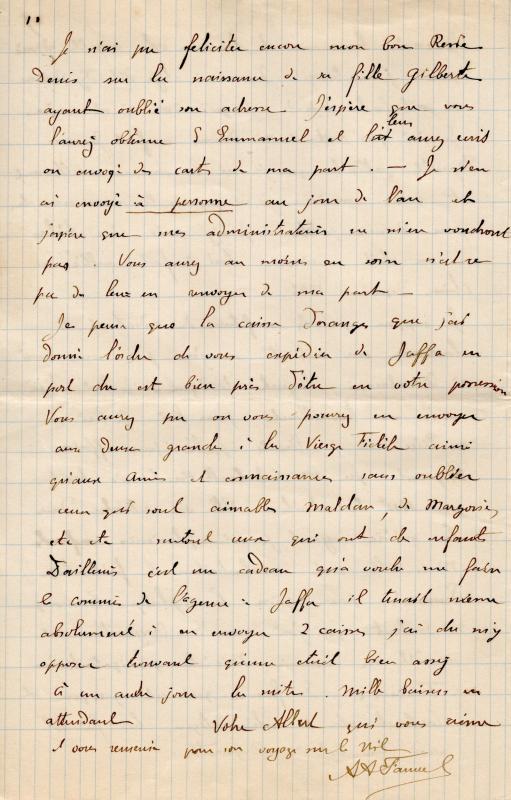 Je n'ai pu feliciter encore mon bon René
Denis sur la naissance de sa fille Gilberte
ayant oublié son adresse J'espère que vous
l'aurez obtenue d'Emmanuel et leur aurez écrit
ou envoyé des cartes de ma part. — Je n'en
ai envoyé à personne au jour de l'an et
j'espère que mes administrateurs ne m'en voudront
pas. Vous aurez au moins eu soin n'est ce
pas de leur en envoyer de ma part —
Je pense que la caisse d'oranges que j'ai
donné l'ordre de vous expédier de Jaffa en
port du est bien près d'être en votre possession
Vous aurez pu ou vous pourrez en envoyer
aux deux grandes à la Vierge Fidèle ainsi
qu'aux amis et connaissances sans oublier
ceux qui sont aimables Maldan, de Margoisi,
etc etc surtout ceux qui ont de enfants
D'ailleurs c'est un cadeau qu'a voulu me faire
le commis de l'agence à Jaffa il tenait même
absolument à en envoyer 2 caisses j'ai du m'y
opposer trouvant qu'une était bien assez
à un autre jour la suite. Mille baisers en
attendant Votre Albert qui vous aime
et vous remercie pour son voyage sur le Nil